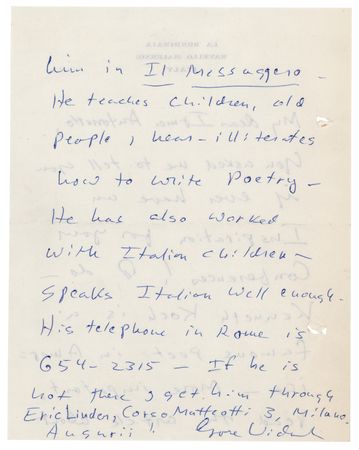 him in Il Messaggero —
He teaches children, old
people, near-illiterates
how to write Poetry —
He has also worked
with Italian children —
speaks Italian well enough.
His telephone in Rome is
654-2315 — If he is
not there, get him through
Eric Linder, Corso Matteotti 3, Milano.
Auguri! Gore Vidal